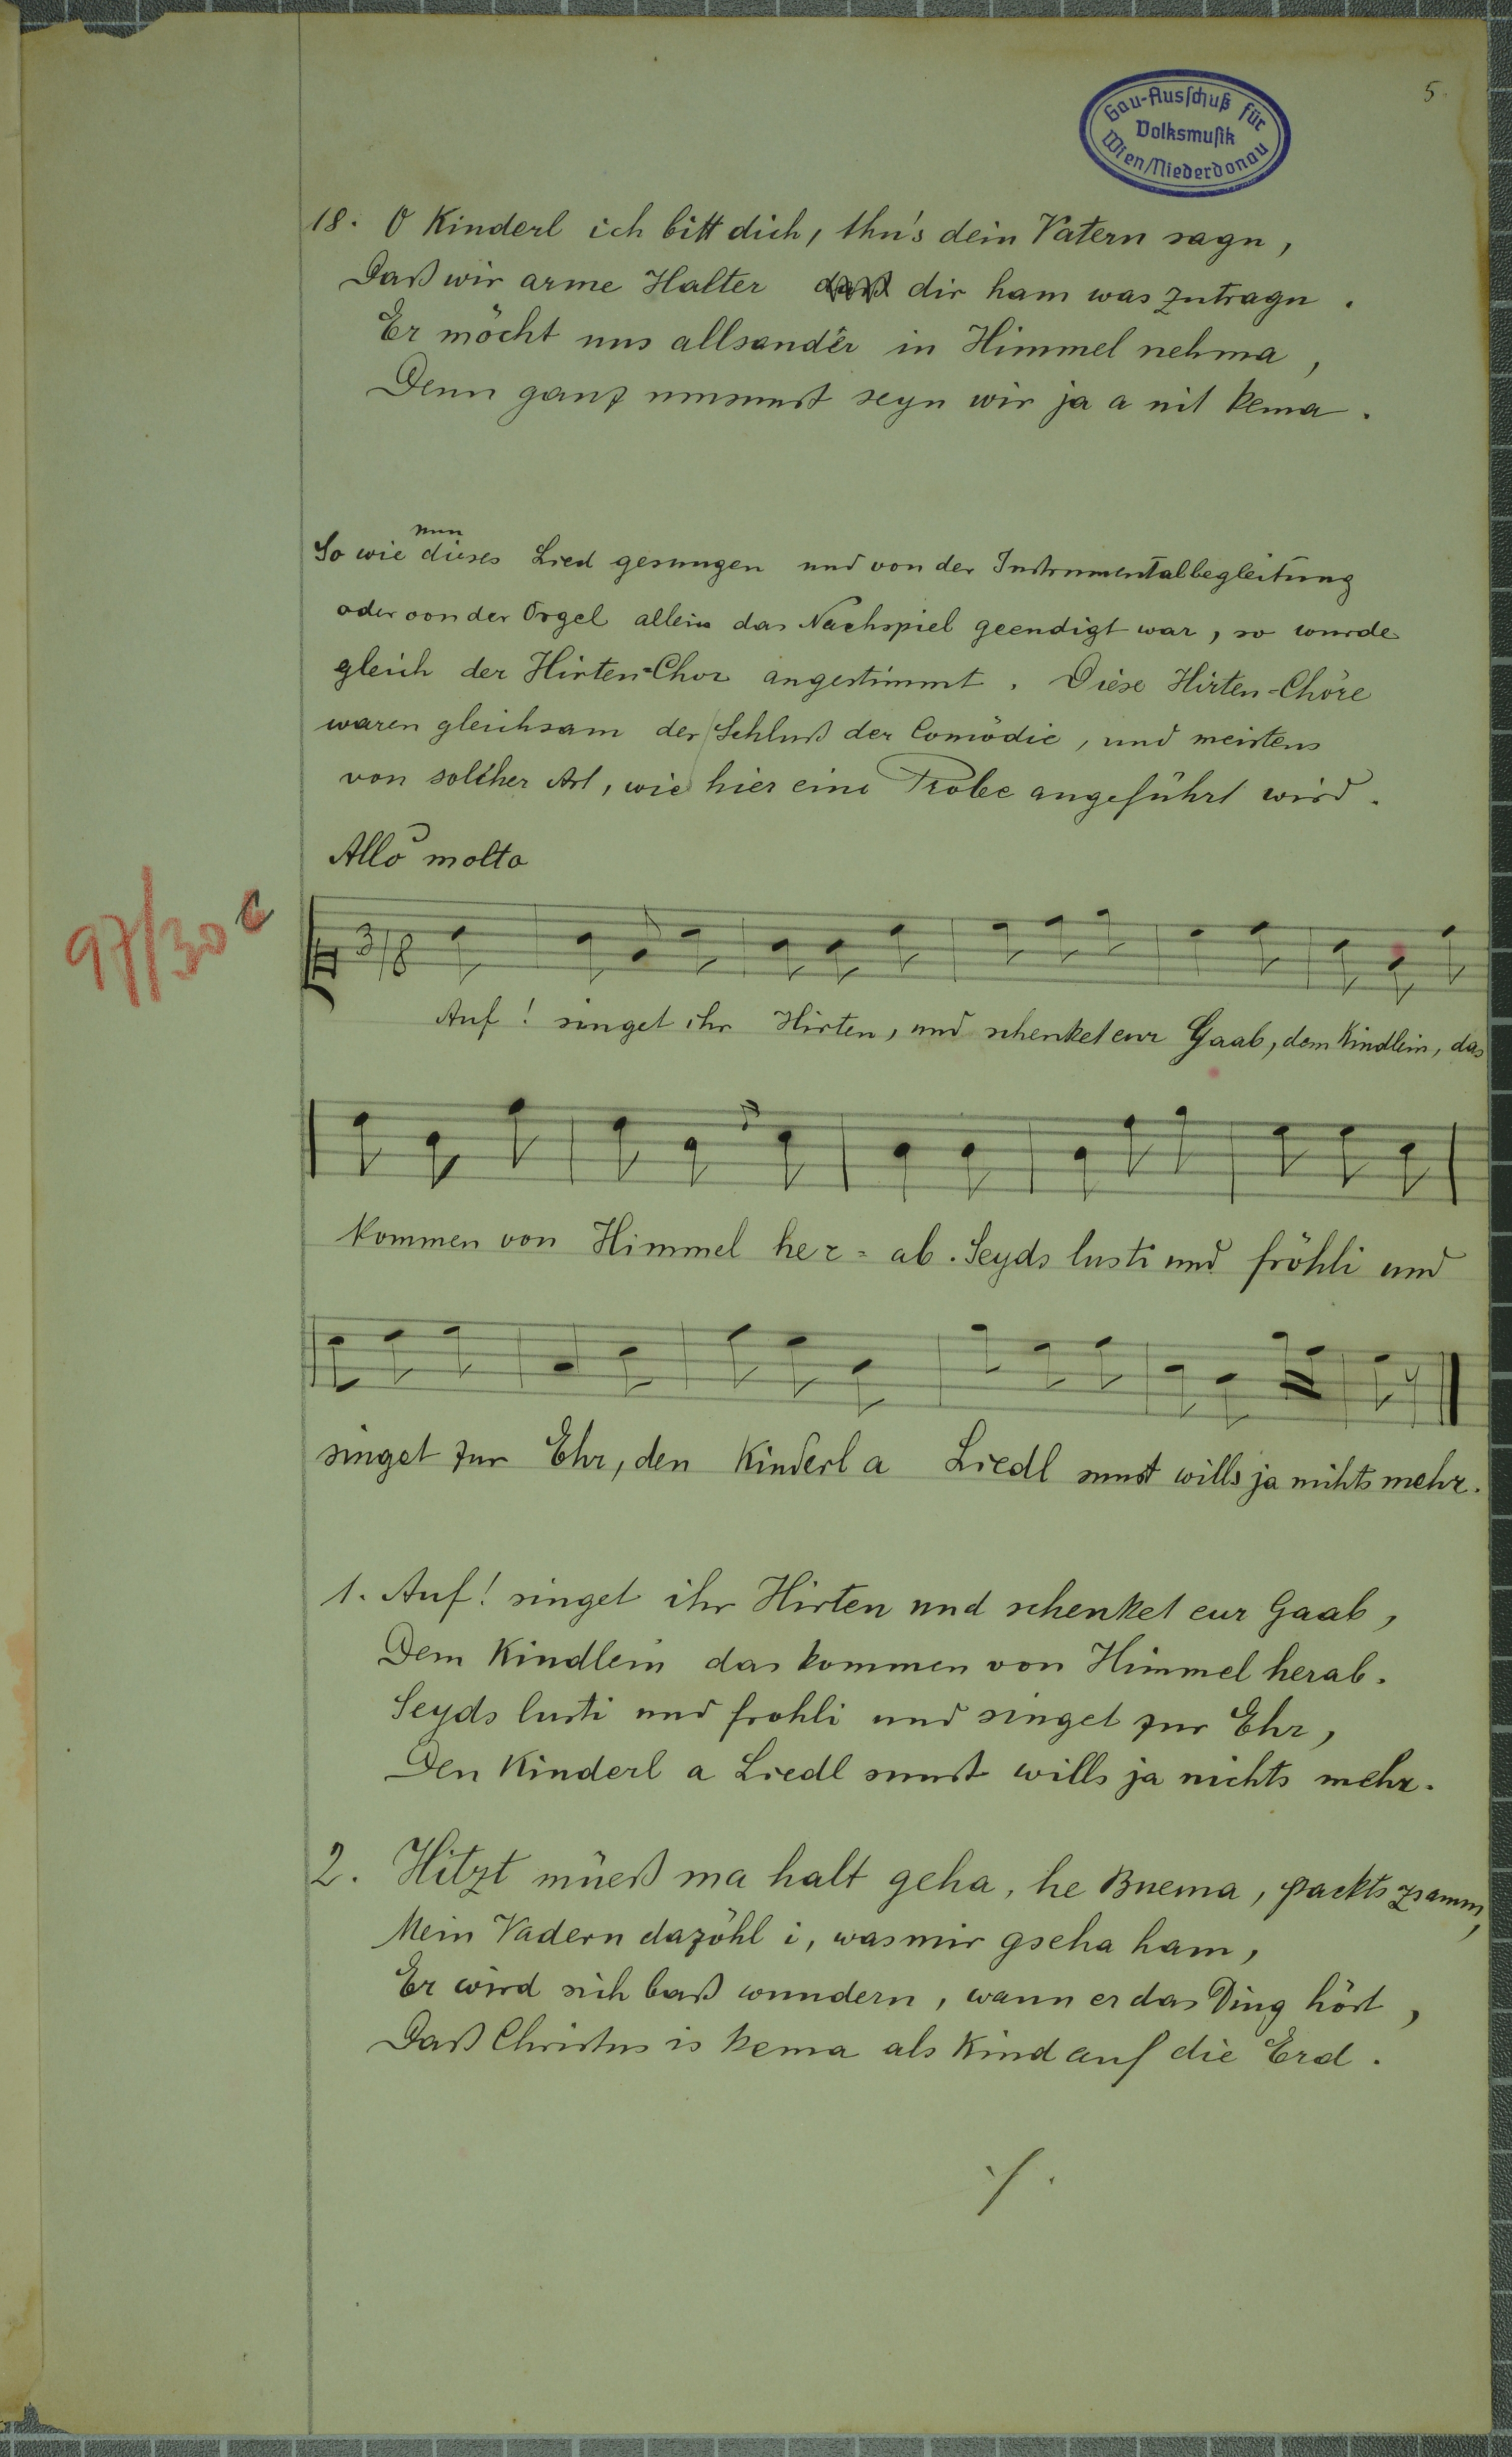 5.
Gau-Ausschuß für
Volksmusik
Wien/Niederdonau
18. O Kinderl ich bitt dich, thu's dein Vatern sagn,
Daß wir arme Halter daß dir ham was zutragn.
Er möcht uns allsander in Himmel nehma,
Denn ganz umsunst seyn wir ja a nit kema.
So wie nun dieses Lied gesungen und von der Instrumentalbegleitung
oder von der Orgel allein das Nachspiel geendigt war, so wurde
gleich der Hirten-Chor angestimmt. Diese Hirten-Chöre
waren gleichsam der Schluß der Comödie, und meistens
von solcher Art, wie hier eine Probe angeführt wird.
Allo molto
97/30 c
3/8
Auf! singet ihr Hirten, und schenket eur Gaab, dem Kindlein, das
kommen von Himmel her=ab. Seyds lusti und fröhli und
singet zur Ehr, den Kinderl a Liedl sunst wills ja nichts mehr.
1. Auf! singet ihr Hirten und schenket eur Gaab,
Dem Kindlein das kommen von Himmel herab.
Seyds lusti und frohli und singet zur Ehr,
Den Kinderl a Liedl sunst wills ja nichts mehr.
2. Hitzt müeß ma halt geha, he Buema, packts zsamm,
Mein Vadern dazöhl i, was mir gseha ham,
Er wird sich baß wundern, wann er das Ding hört,
Daß Christus is kema als Kind auf die Erd.
./.